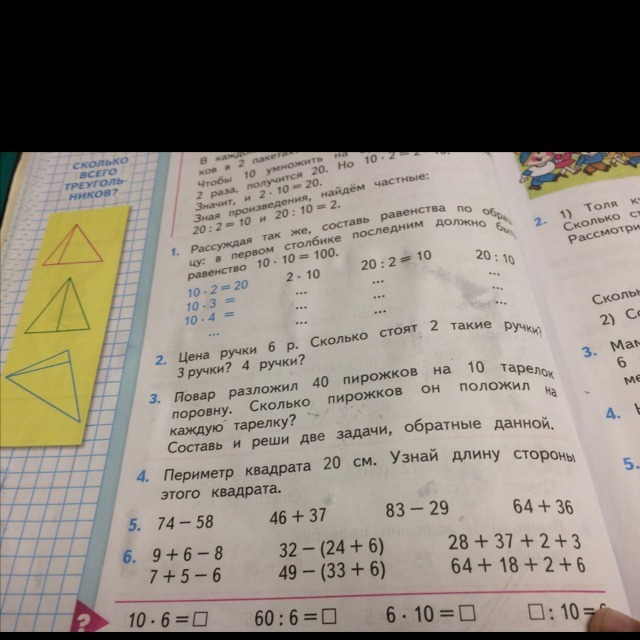 СКОЛЬКО
ВСЕГО
ТРЕУГОЛЬ-
НИКОВ?
В
ков в 2
Чтобы 10 умножить на
2 раза, получится 20. Но 10 · 2 = 2 · 10.
Значит, и 2 · 10 = 20.
Зная произведения, найдём частные:
20 : 2 = 10 и 20 : 10 = 2.
1. Рассуждая так же, составь равенства по образ-
цу: в первом столбике последним должно быть
равенство 10 · 10 = 100.
10 · 2 = 20 2 · 10 20 : 2 = 10 20 : 10
10 · 3 = ... ... ...
10 · 4 = ... ... ...
... ... ... ...
2. Цена ручки 6 р. Сколько стоят 2 такие ручки?
3 ручки? 4 ручки?
3. Повар разложил 40 пирожков на 10 тарелок
поровну. Сколько пирожков он положил на
каждую тарелку?
Составь и реши две задачи, обратные данной.
4. Периметр квадрата 20 см. Узнай длину стороны
этого квадрата.
5. 74 − 58 46 + 37 83 − 29 64 + 36
6. 9 + 6 − 8 32 − (24 + 6) 28 + 37 + 2 + 3
7 + 5 − 6 49 − (33 + 6) 64 + 18 + 2 + 6
? 10 · 6 = □ 60 : 6 = □ 6 · 10 = □ □ : 10 =
2. 1) Толя
Сколько
2)
3.
6
4.
5.